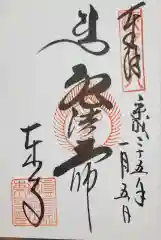 奉拝
平成二十五年
一月五日
弘法大師
東寺